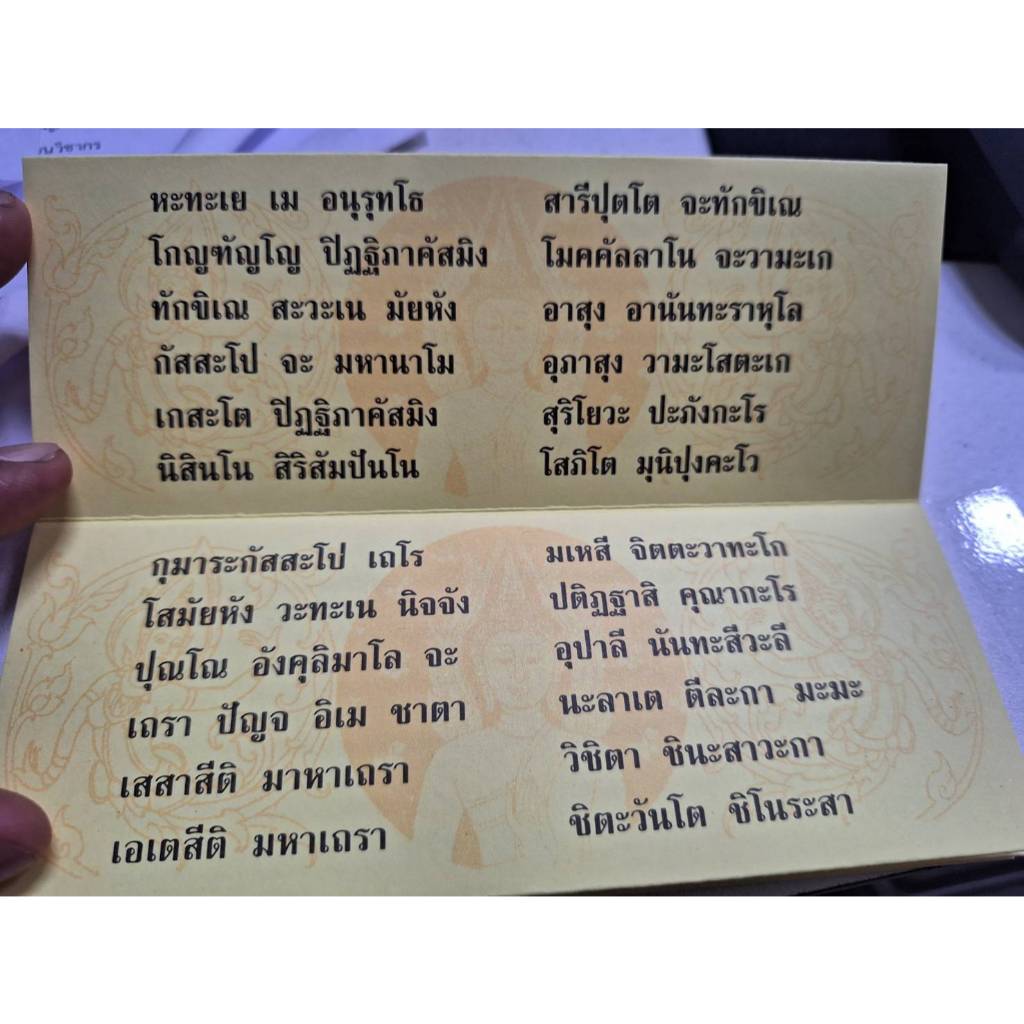 นวิชากร
หะทะเย เม อนุรุทโธ สารีปุตโต จะทักขิเณ
โกญฑัญโญ ปิฏฐิภาคัสมิง โมคคัลลาโน จะวามะเก
ทักขิเณ สะวะเน มัยหัง อาสุง อานันทะราหุโล
กัสสะโป จะ มหานาโม อุภาสุง วามะโสตะเก
เกสะโต ปิฏฐิภาคัสมิง สุริโยวะ ปะภังกะโร
นิสินโน สิริสัมปันโน โสภิโต มุนิปุงคะโว
กุมาระกัสสะโป เถโร มเหสี จิตตะวาทะโก
โสมัยหัง วะทะเน นิจจัง ปติฏฐาสิ คุณากะโร
ปุณโณ อังคุลิมาโล จะ อุปาลี นันทะสีวะลี
เถรา ปัญจ อิเม ชาตา นะลาเต ตีละกา มะมะ
เสสาสีติ มาหาเถรา วิชิตา ชินะสาวะกา
เอเตสีติ มหาเถรา ชิตะวันโต ชิโนระสา